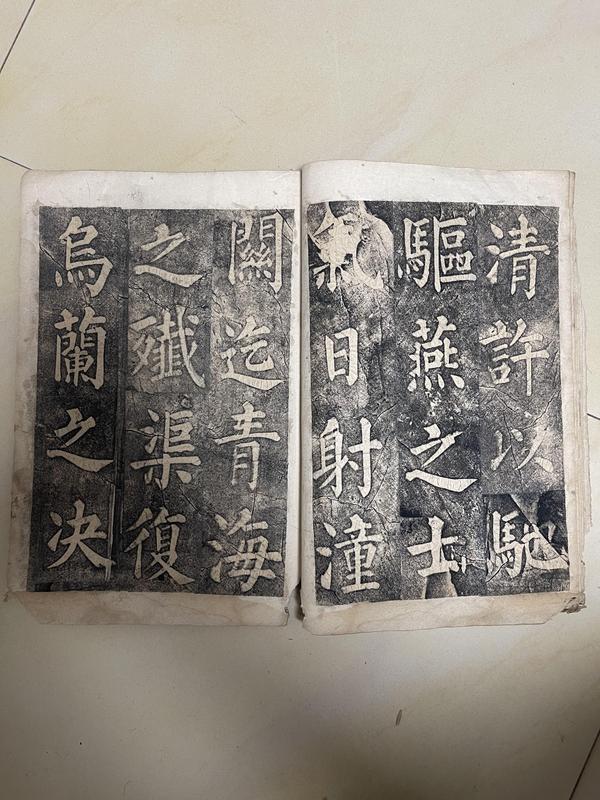 清許以馳
驅燕之士
氣日射潼
關迄青海
之殲渠復
烏蘭之决